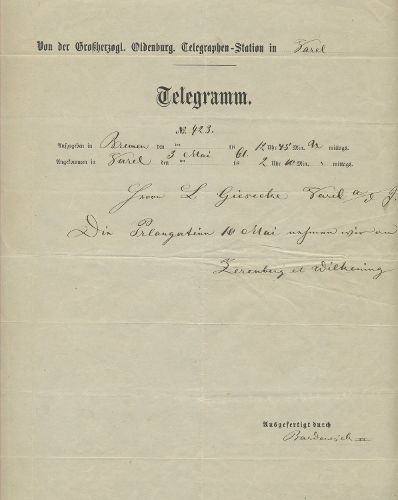 Von der Großherzogl. Oldenburg. Telegraphen-Station in Varel
Telegramm.
№ 423.
Aufgegeben in Bremen den ten 18 12 Uhr 45 Min. mittags.
Angekommen in Varel den 3 ten Mai 1861. 2 Uhr 10 Min. mittags.
Herrn L Giesecke Varel a/d J.
Die Prlongation 10 Mai nehmen wir an
Zerenberg et Wilkening
Ausgefertigt durch